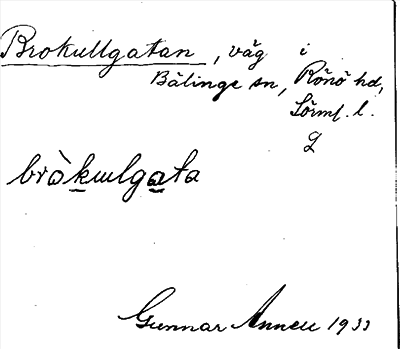 Brokullgatan, väg i
Bälinge sn, Rönö hd,
Sörml. l.
bròkullgata
Gunnar 1933